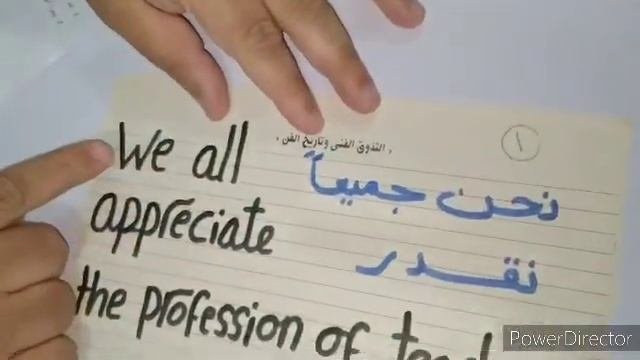 ، التذوق الفنى وتاريخ الفن ،
١
We all
نحن جميعاً
appreciate
نقدر
the profession of
PowerDirector